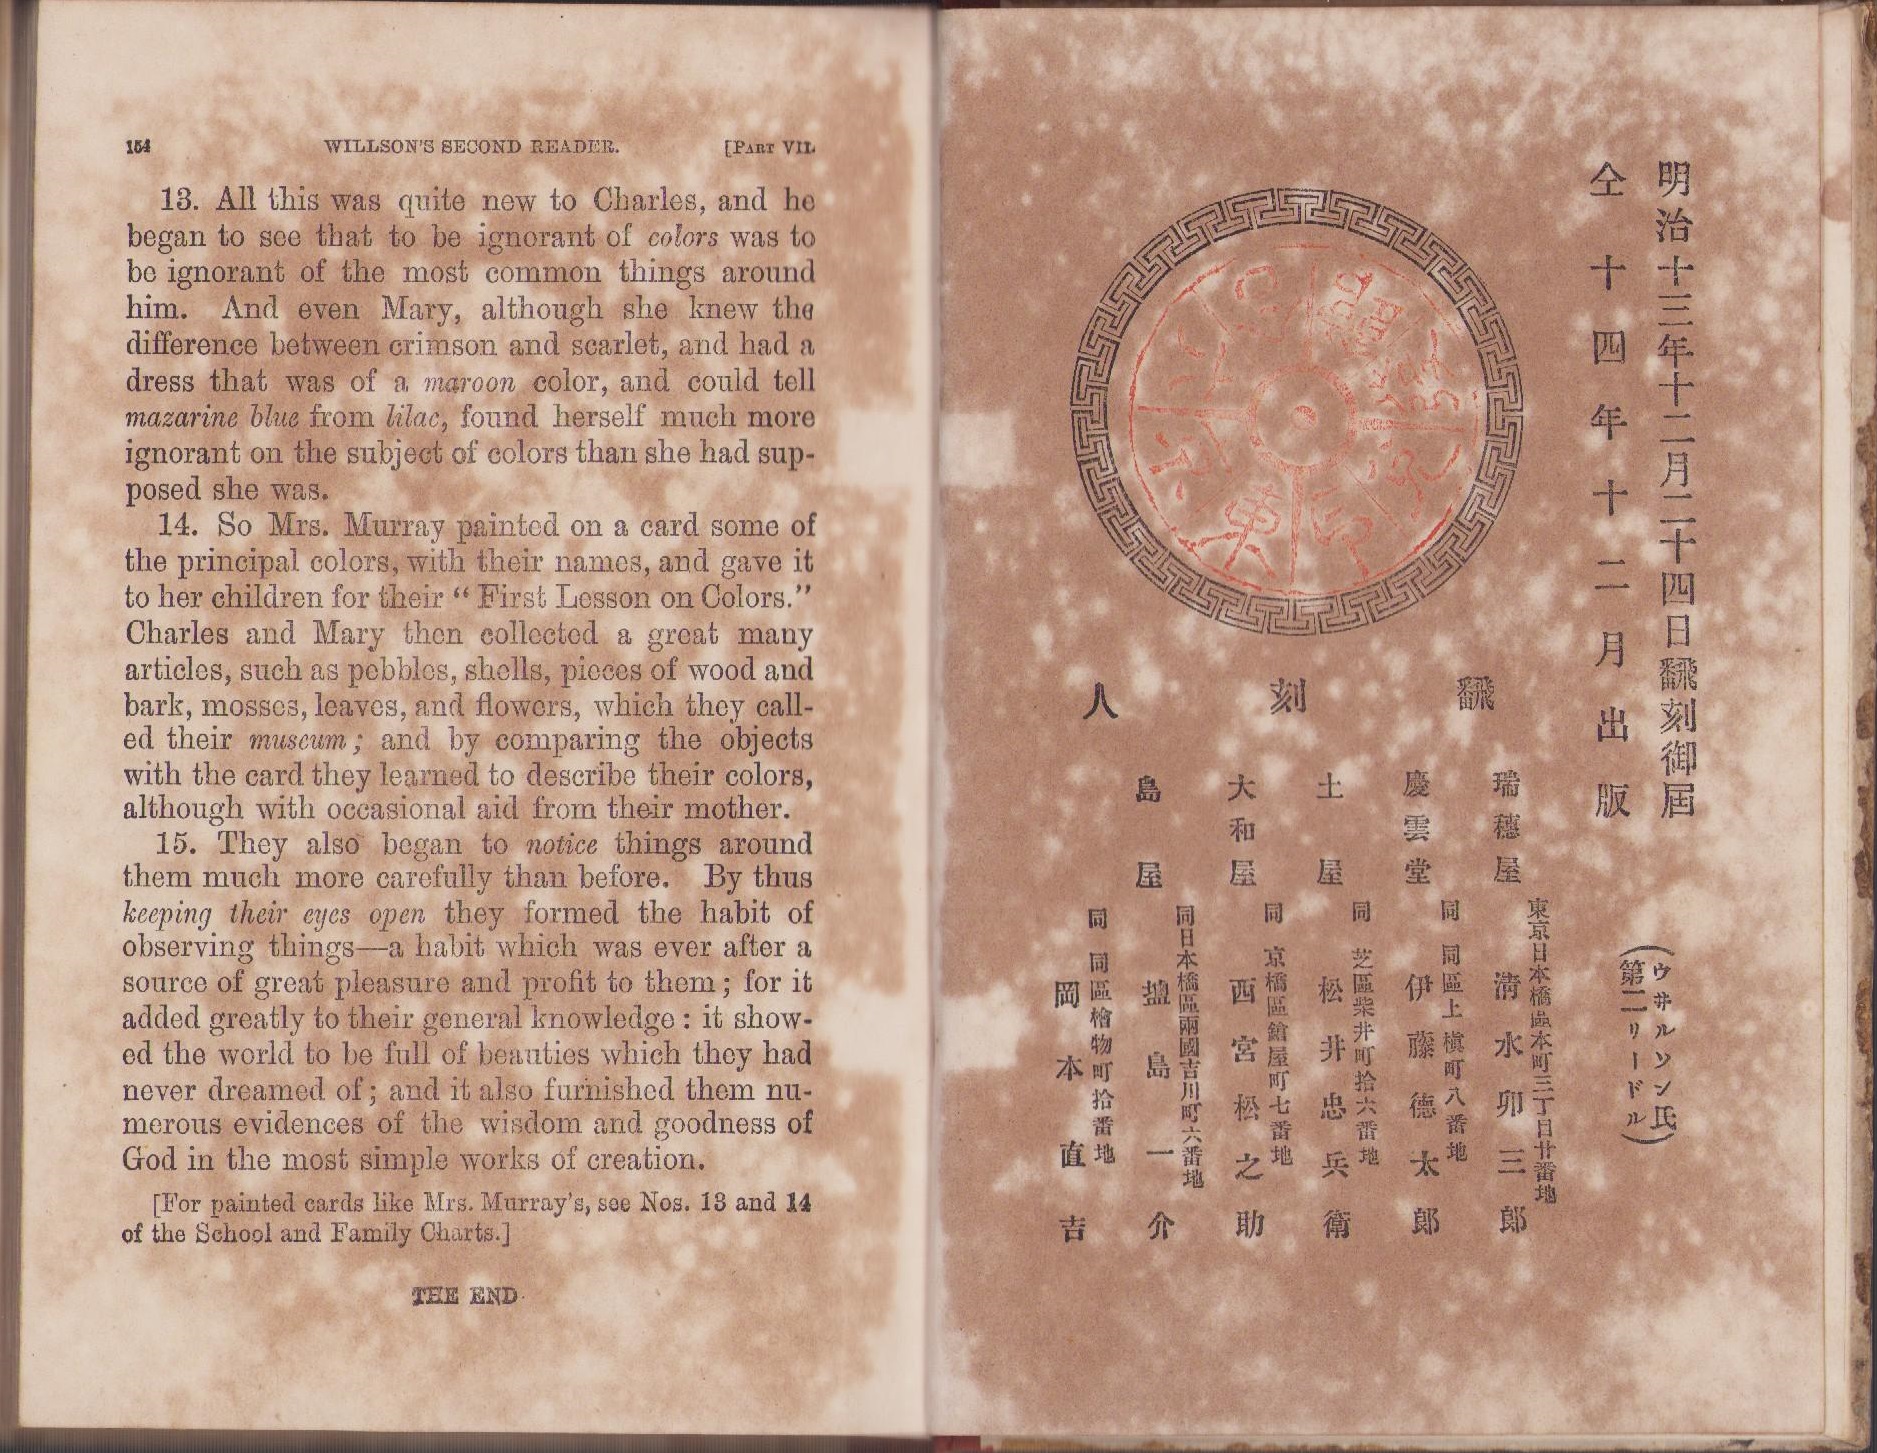 154 WILLSON'S SECOND READER. [PART VII.
13. All this was quite new to Charles, and he
began to see that to be ignorant of colors was to
be ignorant of the most common things around
him. And even Mary, although she knew the
difference between crimson and scarlet, and had a
dress that was of a maroon color, and could tell
mazarine blue from lilac, found herself much more
ignorant on the subject of colors than she had sup-
posed she was.
14. So Mrs. Murray painted on a card some of
the principal colors, with their names, and gave it
to her children for their “ First Lesson on Colors.”
Charles and Mary then collected a great many
articles, such as pebbles, shells, pieces of wood and
bark, mosses, leaves, and flowers, which they call-
ed their museum; and by comparing the objects
with the card they learned to describe their colors,
although with occasional aid from their mother.
15. They also began to notice things around
them much more carefully than before. By thus
keeping their eyes open they formed the habit of
observing things—a habit which was ever after a
source of great pleasure and profit to them; for it
added greatly to their general knowledge: it show-
ed the world to be full of beauties which they had
never dreamed of; and it also furnished them nu-
merous evidences of the wisdom and goodness of
God in the most simple works of creation.
[For painted cards like Mrs. Murray's, see Nos. 13 and 14
of the School and Family Charts.]
THE END.
明治十三年十二月二十四日飜刻御屆
仝十四年十二月出版
(ウ井ルソン氏
第二リードル)
飜刻人
東京日本橋區本町三丁目廿番地
瑞穗屋 淸水卯三郎
同 同區上槇町八番地
慶雲堂 伊藤德太郎
同 芝區柴井町拾六番地
土屋 松井忠兵衛
同 京橋區鎗屋町七番地
大和屋 西宮松之助
同日本橋區兩國吉川町六番地
島屋 塩島一介
同 同區檜物町拾番地
岡本直吉